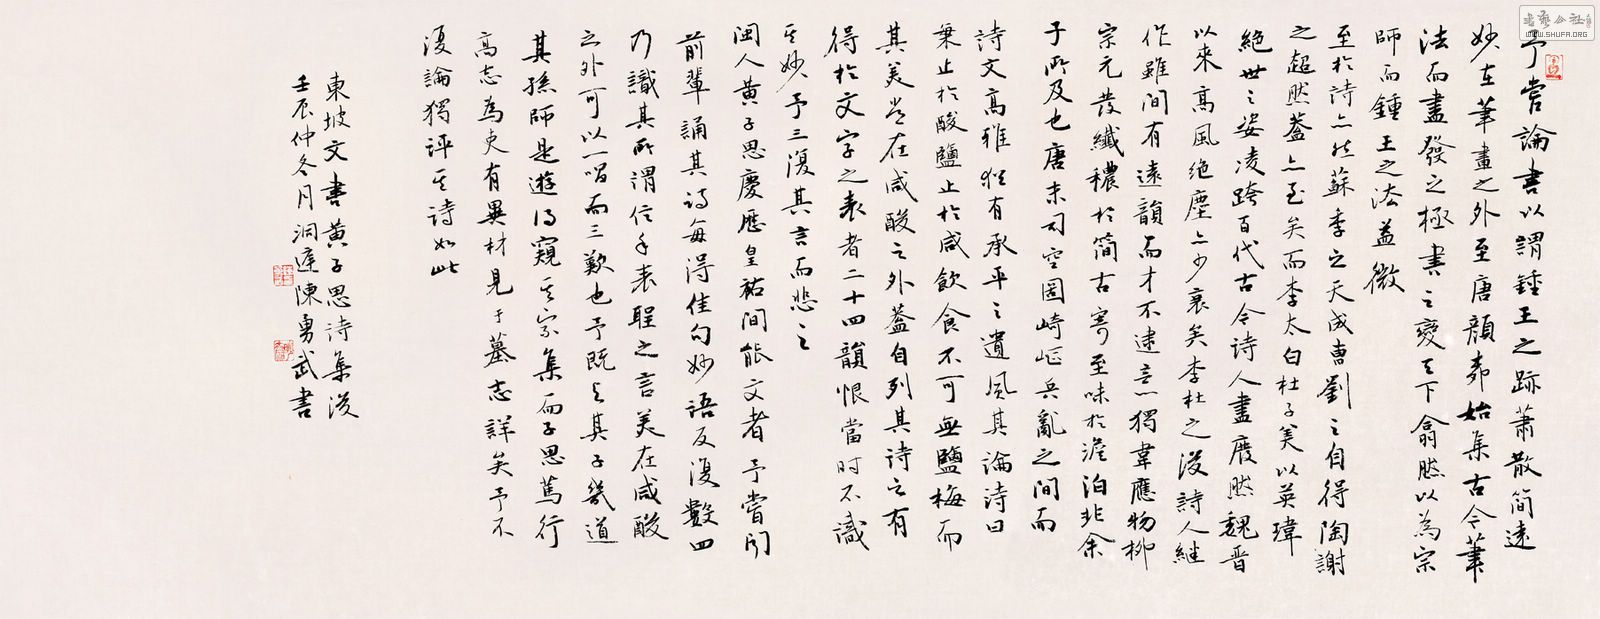 予嘗論書以謂鍾王之跡蕭散簡遠
妙在筆畫之外至唐顏柳始集古今筆
法而盡發之極書之變天下翕然以為宗
師而鍾王之法益微
至於詩亦然蘇李之天成曹劉之自得陶謝
之超然蓋亦至矣而李太白杜子美以英瑋
絕世之姿凌跨百代古今詩人盡廢然魏晉
以來高風絕塵亦少衰矣李杜之後詩人繼
作雖間有遠韻而才不逮意獨韋應物柳
宗元發纖穠於簡古寄至味於澹泊非余
子所及也唐末司空圖崎嶇兵亂之間而
詩文高雅猶有承平之遺風其論詩曰
止於酸鹽止於咸飲食不可無鹽梅而
其美常在咸酸之外蓋自列其詩之有
得於文字之表者二十四韻恨當时不識
其妙予三復其言而悲之
閩人黃子思慶歷皇祐間能文者予嘗聞
前輩誦其詩每得佳句妙語反復數四
乃識其所謂信乎表聖之言美在咸酸
之外可以一唱而三歎也予既與其子幾道
其孫師是遊得窺其家集而子思篤行
高志為吏有異材見于墓志詳矣予不
復論獨評其詩如此
東坡文書黃子思詩集後
壬辰仲冬月洞達陳勇武書
WWW.SHUFA.ORG